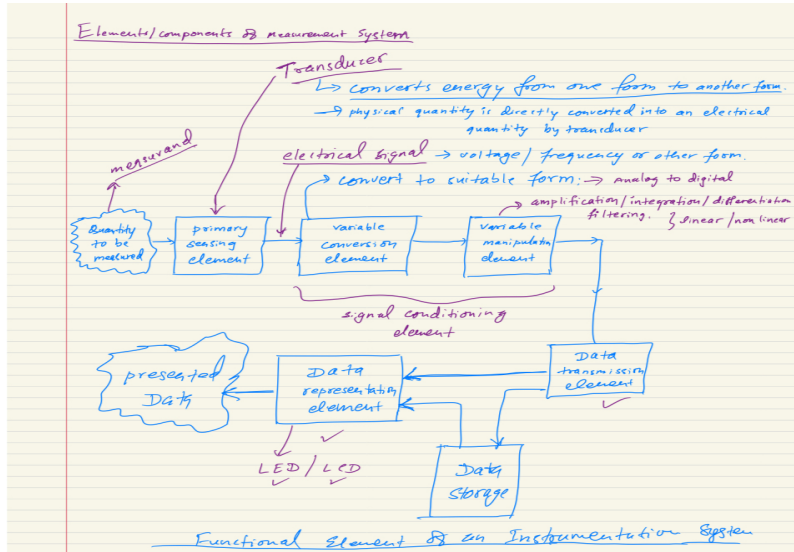 Elements/components of measurement system
Transducer
↳ converts energy from one form to another form.
→ physical quantity is directly converted into an electrical
quantity by transducer
measurand
electrical signal → voltage/frequency or other form.
→ convert to suitable form: → Analog to digital
→ amplification/integration/differentiation
filtering. } linear/non linear
Quantity
to be
measured
primary
sensing
element
variable
conversion
element
variable
manipulation
element
signal conditioning
element
presented
Data
Data
representation
element
Data
transmission
element
LED / LCD
Data
storage
Functional Element of an Instrumentation System